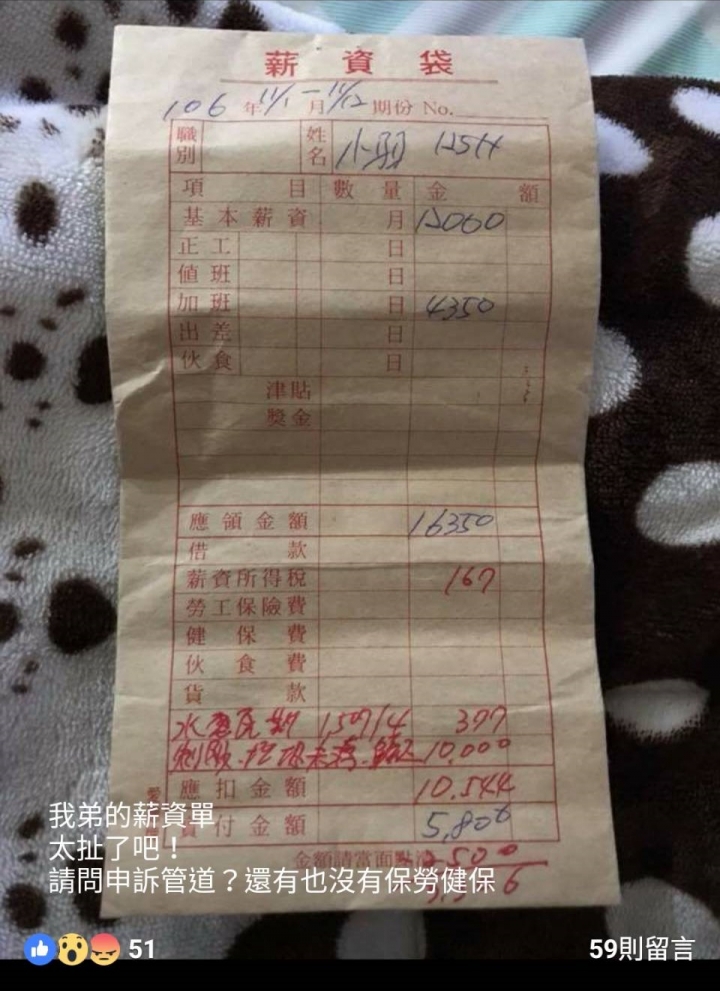 薪資袋
106年11/1-11/12月期份 No.
職別 姓名 小羽 125H
項目 數量 金額
基本薪資 月 12000
正工 日
值班 日
加班 日 4350
出差 日
伙食 日
津貼
獎金
應領金額 16350
借款
薪資所得稅 167
勞工保險費
健保費
伙食費
貨款
水電瓦斯 1,507/4 377
罰款 10,000
應扣金額 10,544
實付金額 5,806
金額請當面點清
我弟的薪資單
太扯了吧！
請問申訴管道？還有也沒有保勞健保
51
59則留言